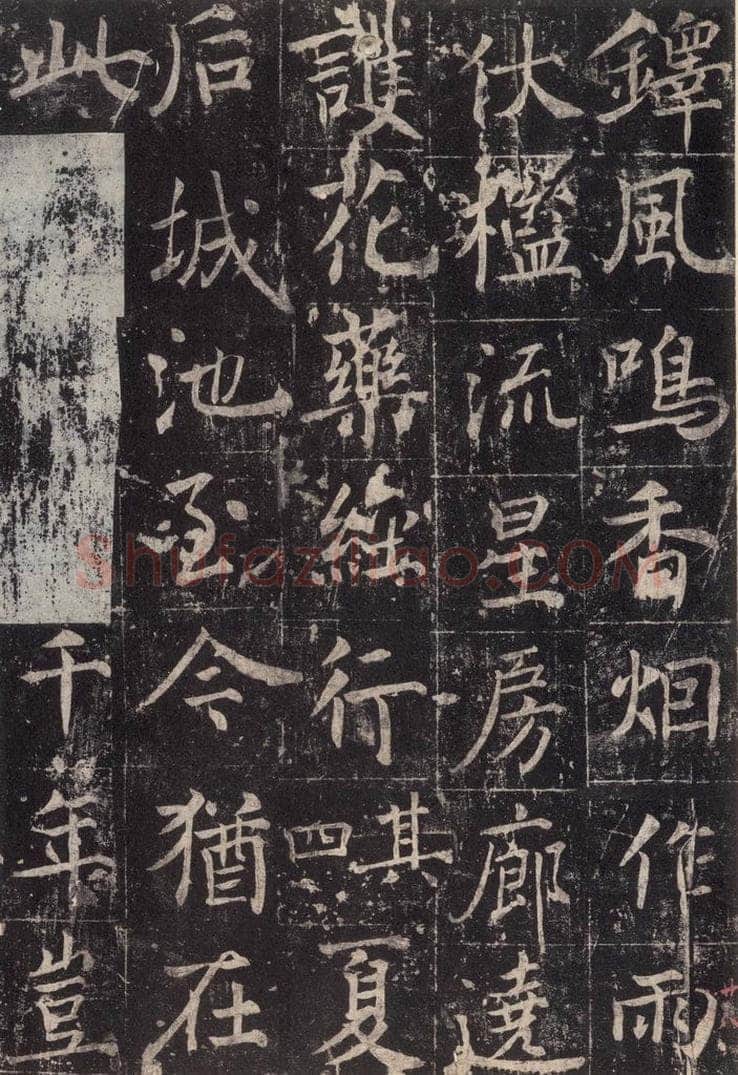 鐸風鳴香烟作雨
伏檻流星房廊遶
護花藥經行其四夏
后城池至今猶在
此千年豈
Shufaziliao.COM